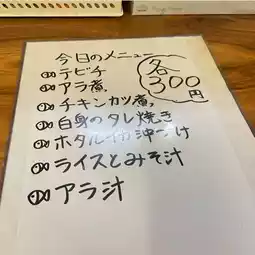 今日のメニュー
各
300
円
テビチ
アラ煮、
チキンカツ煮、
白身のタレ焼き
ホタルイカ沖づけ
ライスとみそ汁
アラ汁